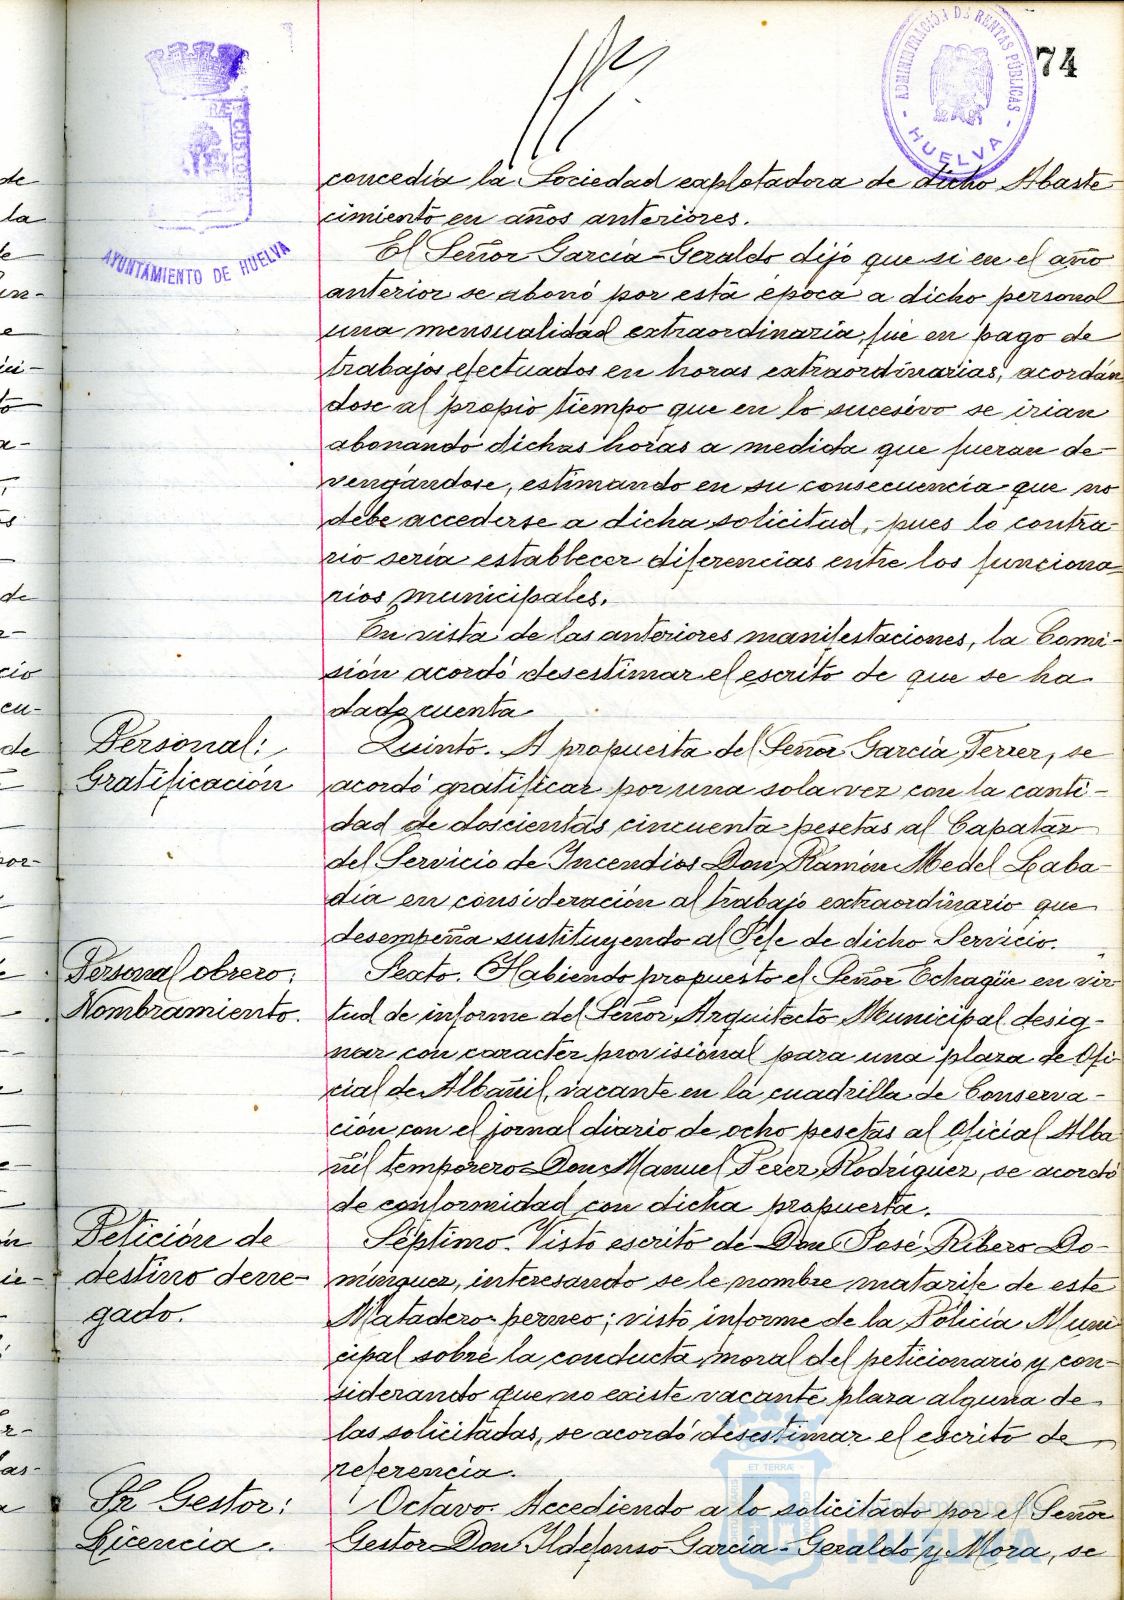 74
ADMINISTRACIÓN DE RENTAS PÚBLICAS
- HUELVA -
CUSTO
AYUNTAMIENTO DE HUELVA
concedía la Sociedad explotadora de dicho Abaste
cimiento en años anteriores.
El Señor García-Geraldo dijo que si en el año
anterior se abonó por esta época a dicho personal
una mensualidad extraordinaria, fué en pago de
trabajos efectuados en horas extraordinarias, acordán
dose al propio tiempo que en lo sucesivo se irían
abonando dichas horas a medida que fueran de-
vengándose, estimando en su consecuencia que no
debe accederse a dicha solicitud, pues lo contra
rio sería establecer diferencias entre los funciona-
rios municipales.
En vista de las anteriores manifestaciones, la Comi-
sión acordó desestimar el escrito de que se ha
dado cuenta
Personal:
Gratificación
Quinto. A propuesta del Señor García Ferrer, se
acordó gratificar por una sola vez con la canti-
dad de doscientas cincuenta pesetas al Capataz
del Servicio de Incendios Don Ramón Medel Laba-
día en consideración al trabajo extraordinario que
desempeña sustituyendo al Jefe de dicho Servicio.
Personal obrero:
Nombramiento.
Sexto. Habiendo propuesto el Señor Echagüe en vir
tud de informe del Señor Arquitecto Municipal desig-
nar con caracter provisional para una plaza de Ofi
cial de Albañil, vacante en la cuadrilla de Conserva-
ción con el jornal diario de ocho pesetas al Oficial Alba
ñil temporero Don Manuel Perez Rodríguez, se acordó
de conformidad con dicha propuesta.
Petición de
destino dene-
gado.
Séptimo. Visto escrito de Don José Ribero Do-
mínguez, interesando se le nombre matarife de este
Matadero perneo; visto informe de la Policía Muni
cipal sobre la conducta moral del peticionario y con-
siderando que no existe vacante plaza alguna de
las solicitadas, se acordó desestimar el escrito de
referencia.
Sr Gestor:
Licencia.
Octavo. Accediendo a lo solicitado por el Señor
Gestor Don Ildefonso García-Geraldo y Mora, se
ET TERRÆ
Ayuntamiento de
HUELVA